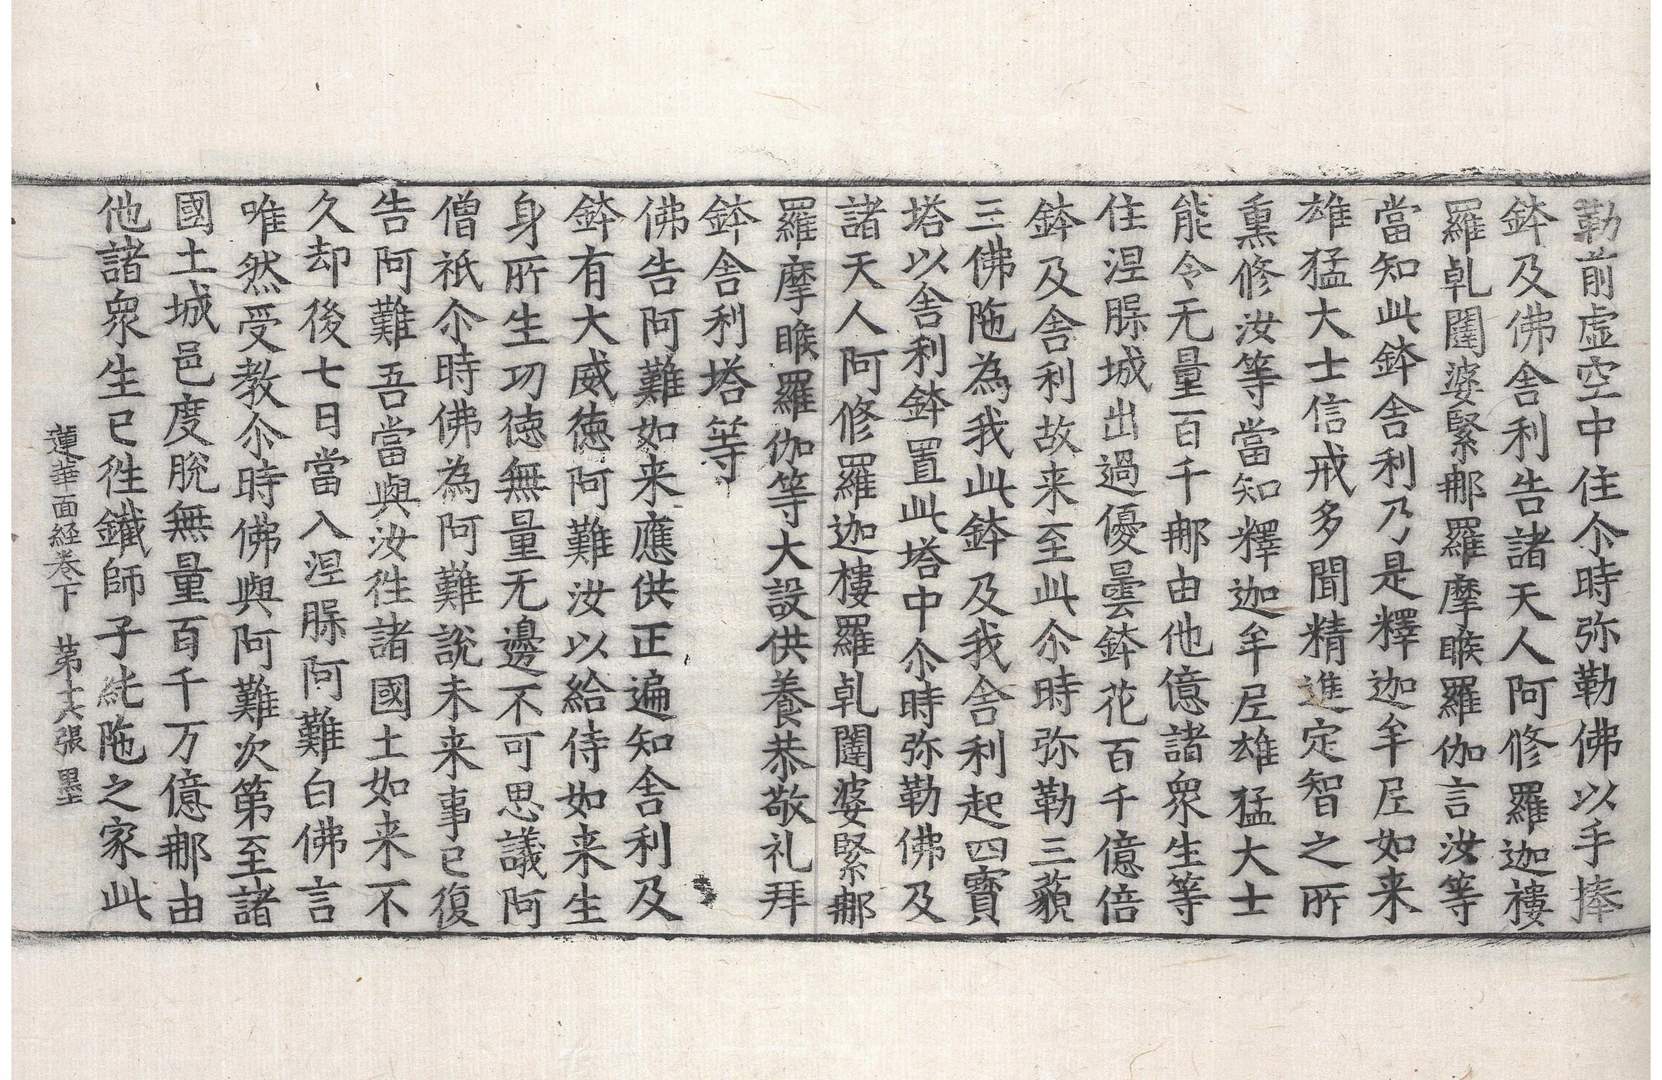 勒前虛空中住尒時弥勒佛以手捧
鉢及佛舍利告諸天人阿修羅迦樓
羅乹闥婆緊那羅摩睺羅伽言汝等
當知此鉢舍利乃是釋迦牟尼如来
雄猛大士信戒多聞精進定智之所
熏修汝等當知釋迦牟尼雄猛大士
能令无量百千那由他億諸衆生等
住涅槃城出過優曇鉢花百千億倍
鉢及舍利故来至此尒時弥勒三藐
三佛陁為我此鉢及我舍利起四寶
塔以舍利鉢置此塔中尒時弥勒佛及
諸天人阿修羅迦樓羅乹闥婆緊那
羅摩睺羅伽等大設供養恭敬礼拜
鉢舍利塔等
佛告阿難如来應供正遍知舍利及
鉢有大威徳阿難汝以給侍如来生
身所生功徳無量无邊不可思議阿
僧祇尒時佛為阿難說未来事已復
告阿難吾當與汝徃諸國土如来不
久却後七日當入涅槃阿難白佛言
唯然受教尒時佛與阿難次第至諸
國土城邑度脫無量百千万億那由
他諸衆生已徃鐵師子純陁之家此
蓮華面経卷下 第十六張 墨